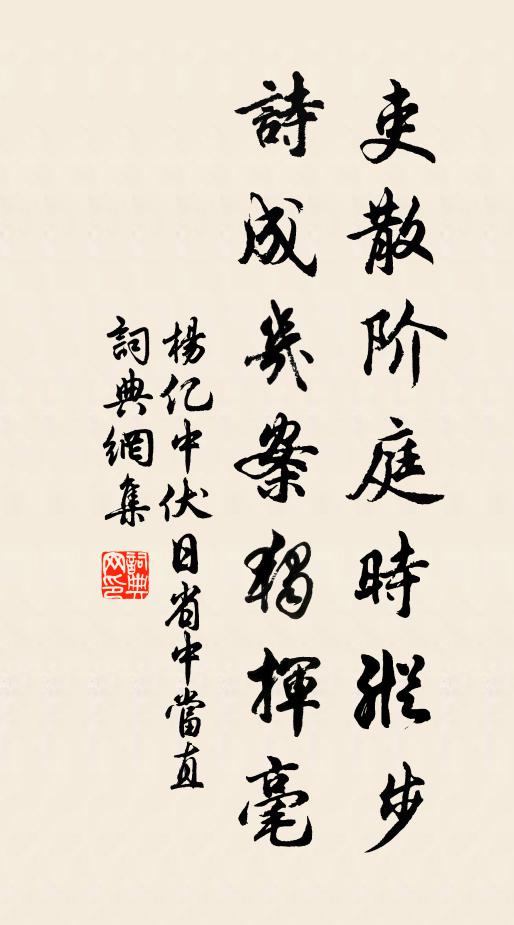 吏散阶庭時縱步
詩成几案獨揮毫
楊亿中伏日省中當直
詞典網集
詞典网印